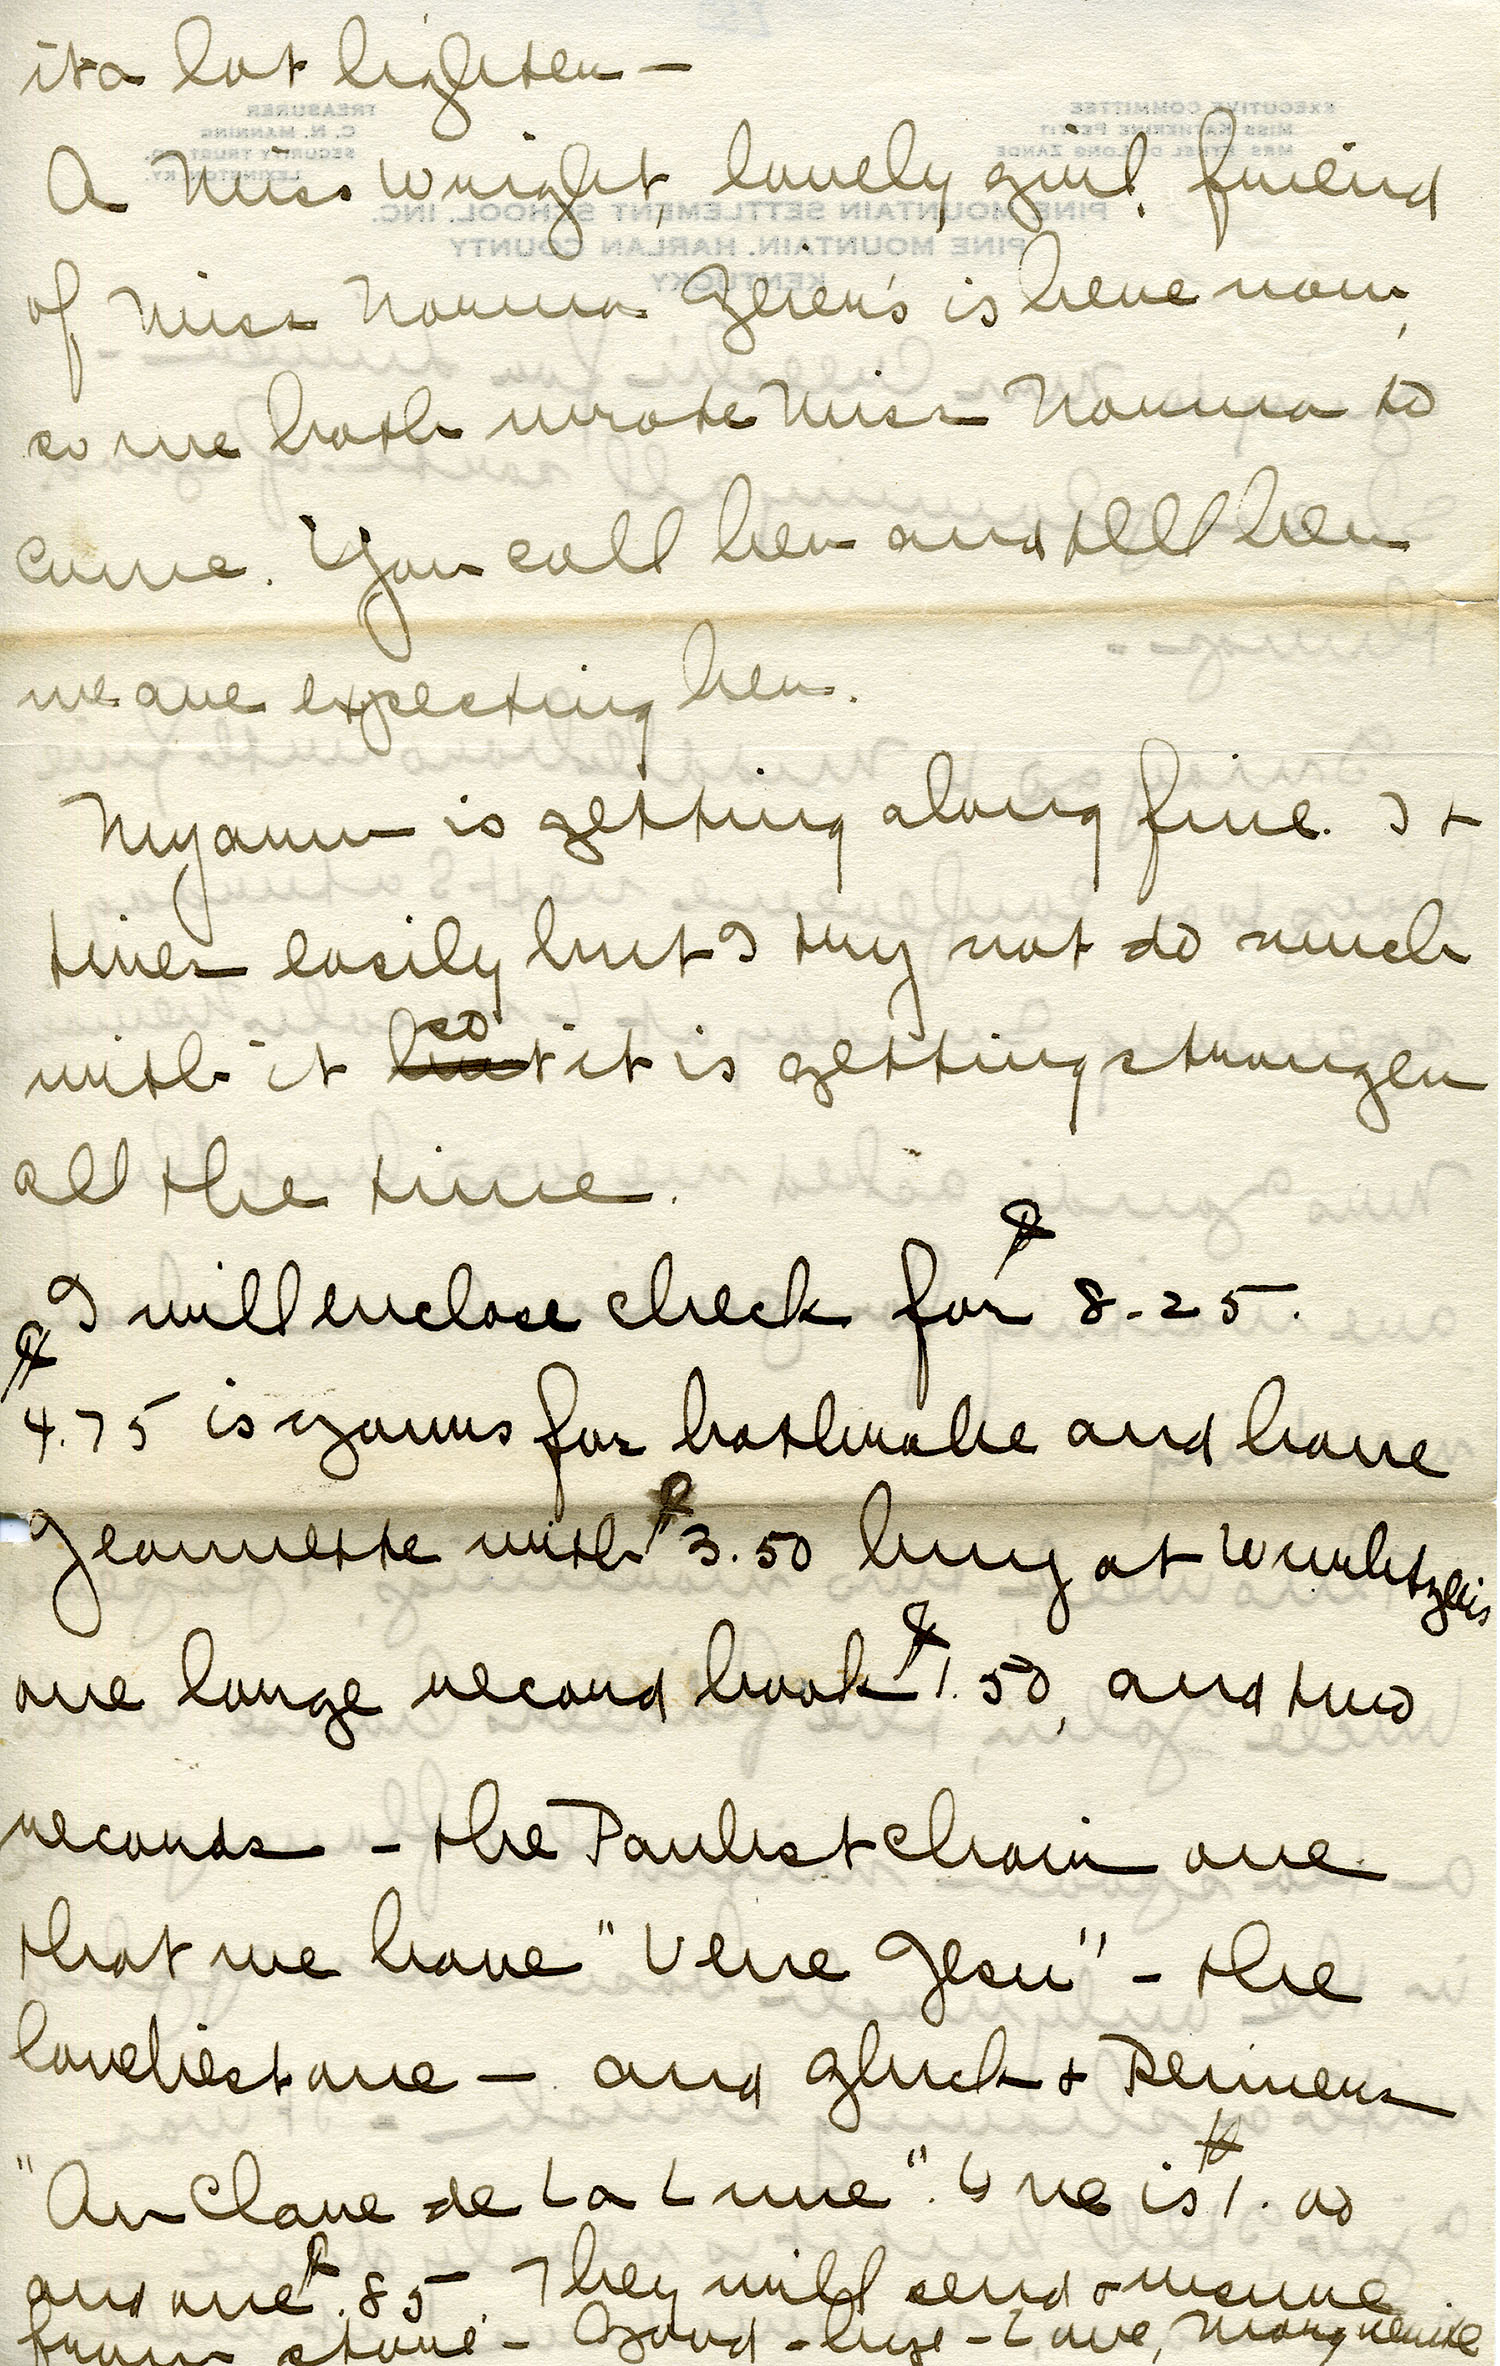 its a lot lighter —
A Miss Wright, lovely girl, friend
of Miss Norma Geier's is here now,
so we both wrote Miss Norma to
come. You call her and tell her
we are expecting her.
My arm is getting along fine. It
tires easily but I try not do much
with it so it is getting stronger
all the time.
I will enclose check for $8.25.
$4.75 is yours for bathrobe and have
Jeannette with $3.50 buy at Wurlitzer's
one large record book $1.50, and two
records - the Paulist Choir one
that we have "Vere Jesu" - the
loveliest one — and Gluck & Reimers
"Au Clare de La Lune". One is $1.00
and one $.85. They will send & insure
from store - Good-bye - Love, Marguerite